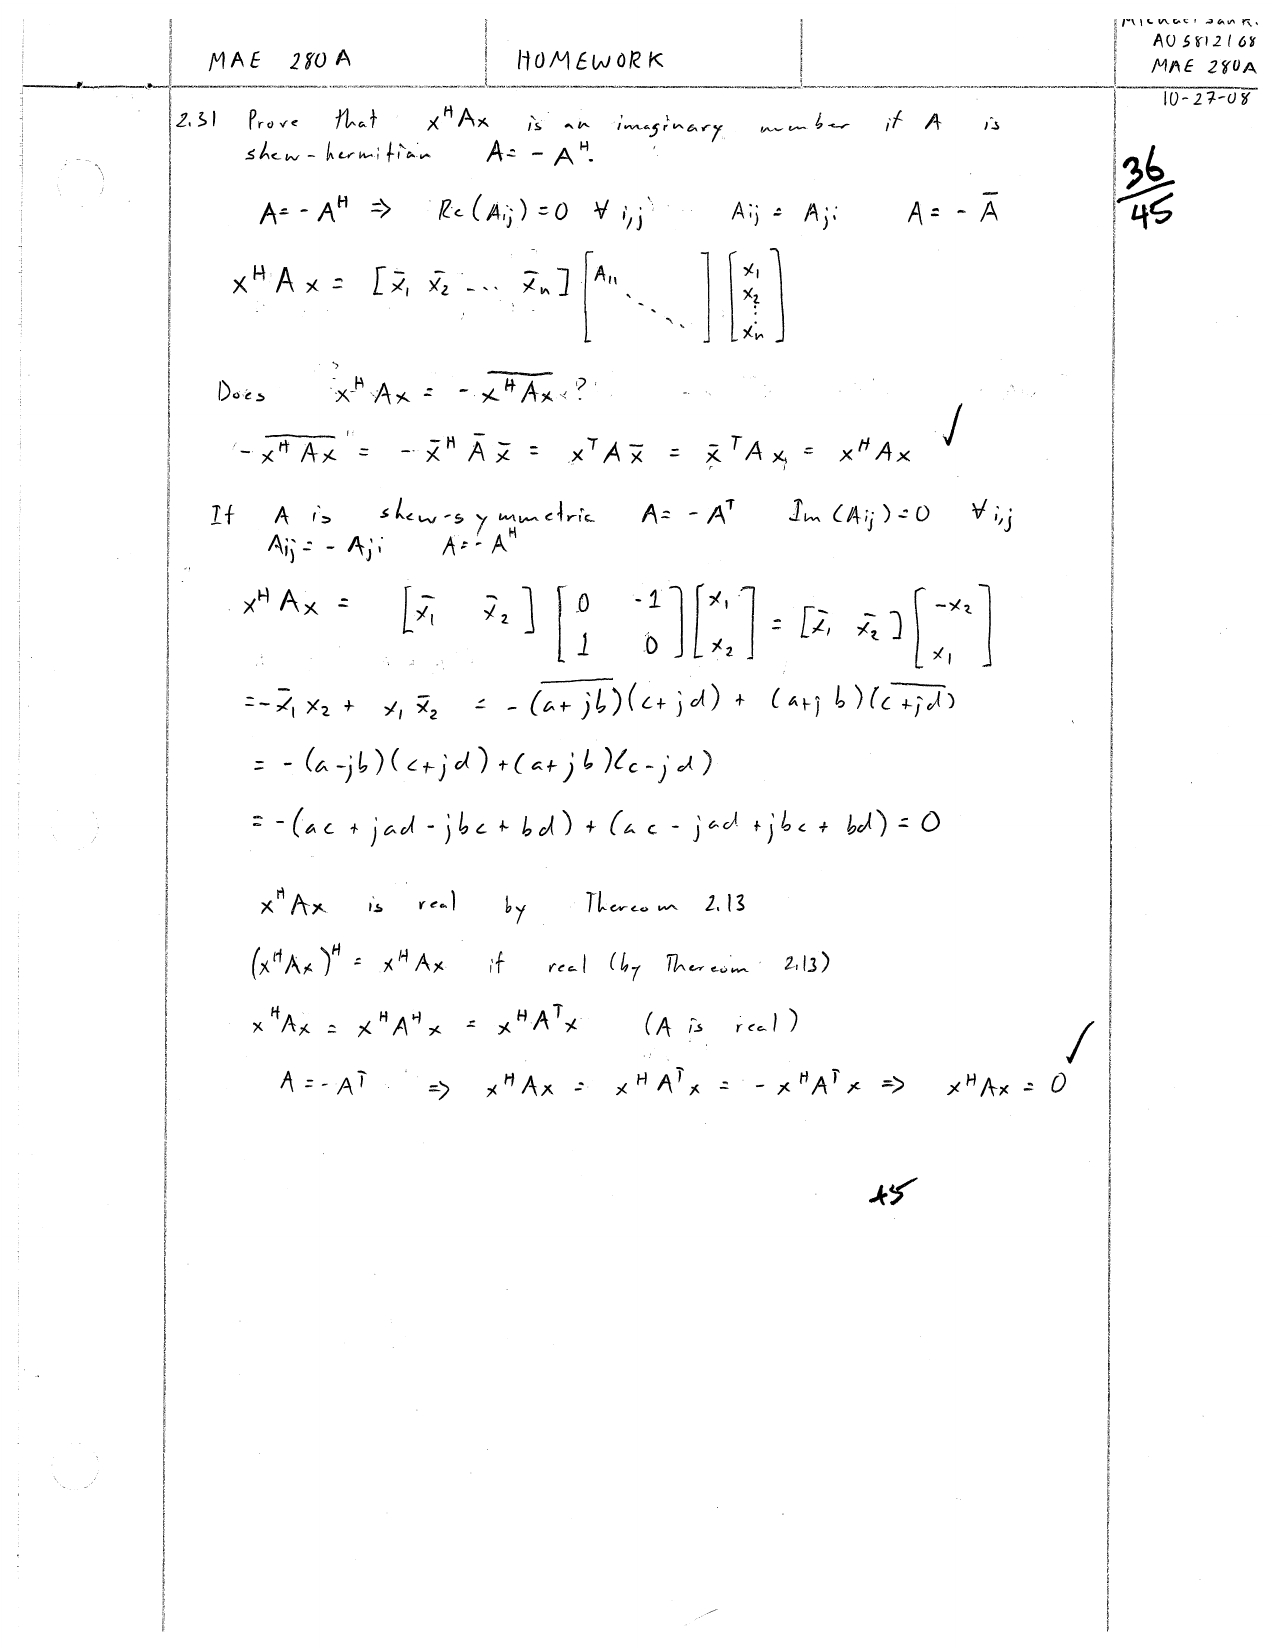 MAE 280A HOMEWORK
AO5812168
MAE 280A
10-27-08
36/45
2.31 Prove that xᴴAx is an imaginary number if A is
skew-hermitian A = -Aᴴ.
A = -Aᴴ ⇒ Re(Aij) = 0 ∀ i,j Aij = Aji A = -Ā
xᴴAx = [x̄₁ x̄₂ ... x̄n] [A₁₁ ⋱] [x₁ x₂ ⋮ xn]
Does xᴴAx = -\overline{xᴴAx} ?
-\overline{xᴴAx} = -x̄ᴴ Ā x̄ = xᵀA x̄ = x̄ᵀAx = xᴴAx ✓
If A is skew-symmetric A = -Aᵀ Im(Aij) = 0 ∀ i,j
Aij = -Aji A = -Aᴴ
xᴴAx = [x̄₁ x̄₂] [0 -1; 1 0] [x₁; x₂] = [x̄₁ x̄₂] [-x₂; x₁]
= -x̄₁x₂ + x₁x̄₂ = -\overline{(a+jb)}(c+jd) + (a+jb)\overline{(c+jd)}
= -(a-jb)(c+jd)+(a+jb)(c-jd)
= -(ac + jad - jbc + bd) + (ac - jad + jbc + bd) = 0
xᴴAx is real by Thereom 2.13
(xᴴAx)ᴴ = xᴴAx if real (by Thereom 2.13)
xᴴAx = xᴴAᴴx = xᴴAᵀx (A is real)
A = -Aᵀ ⇒ xᴴAx = xᴴAᵀx = -xᴴAᵀx ⇒ xᴴAx = 0 ✓
+5